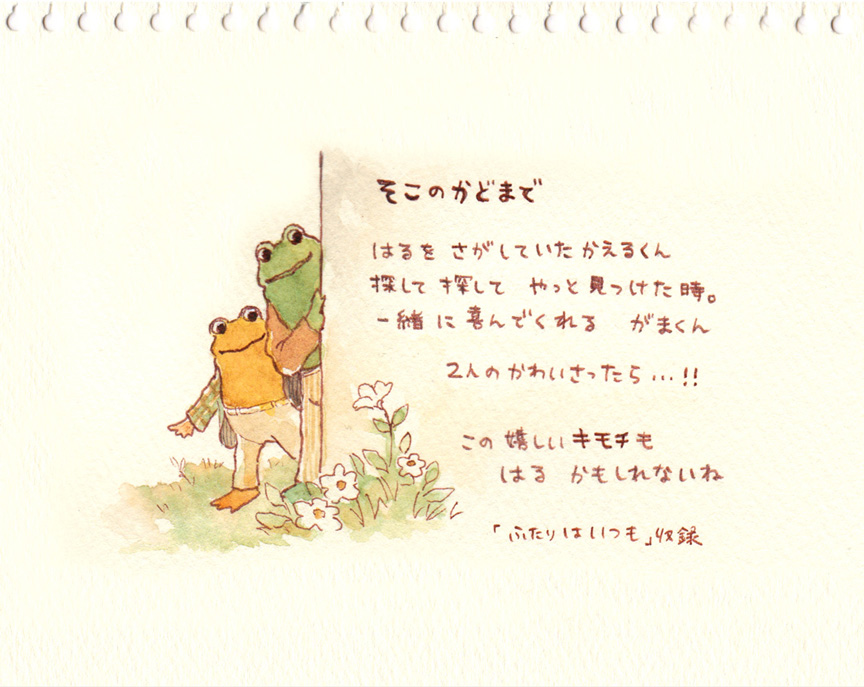 そこのかどまで
はるを さがしていた かえるくん
探して 探して やっと 見つけた 時。
一緒 に 喜んでくれる がまくん
2人の かわいさったら...!!
この 嬉しい キモチも
はる かもしれないね
「ふたりはいつも」収録